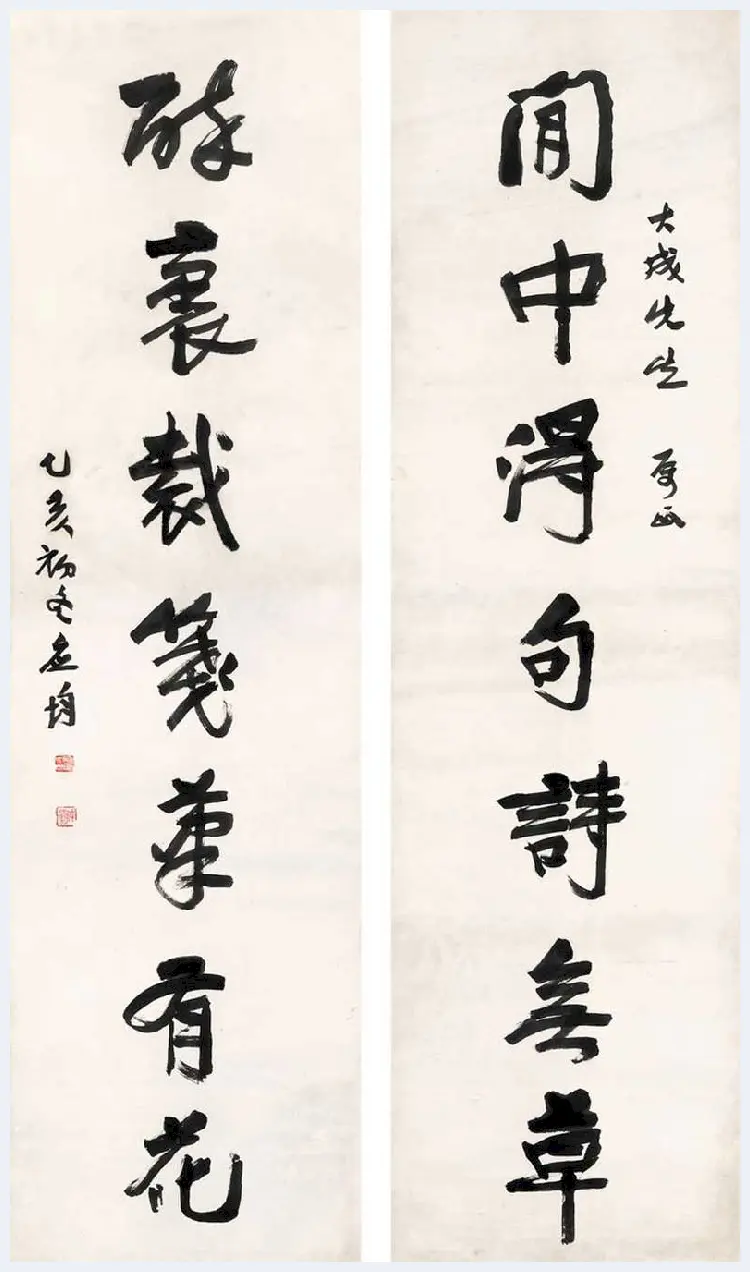 大城先生
閒中得句詩無草
醉裏裁箋筆有花
乙亥初冬應均